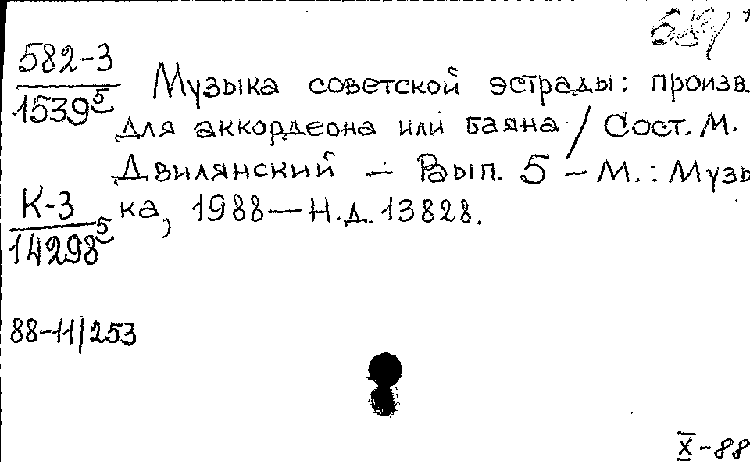 582-3
1539⁵
Музыка советской эстрады: произв
для аккордеона или баяна / Сост. М.
Двилянский — Вып. 5 — М.: Музы
ка, 1988 — Н.д. 13828.
К-3
14298⁵
88-11/253
X-88